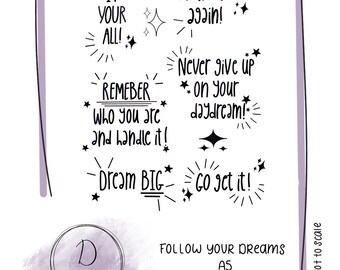 YOUR
ALL!
again!
REMEBER
who you are
and handle it!
Never give up
on your
daydream!
Dream BIG
Go get it!
D
FOLLOW YOUR DREAMS
A5
not to scale